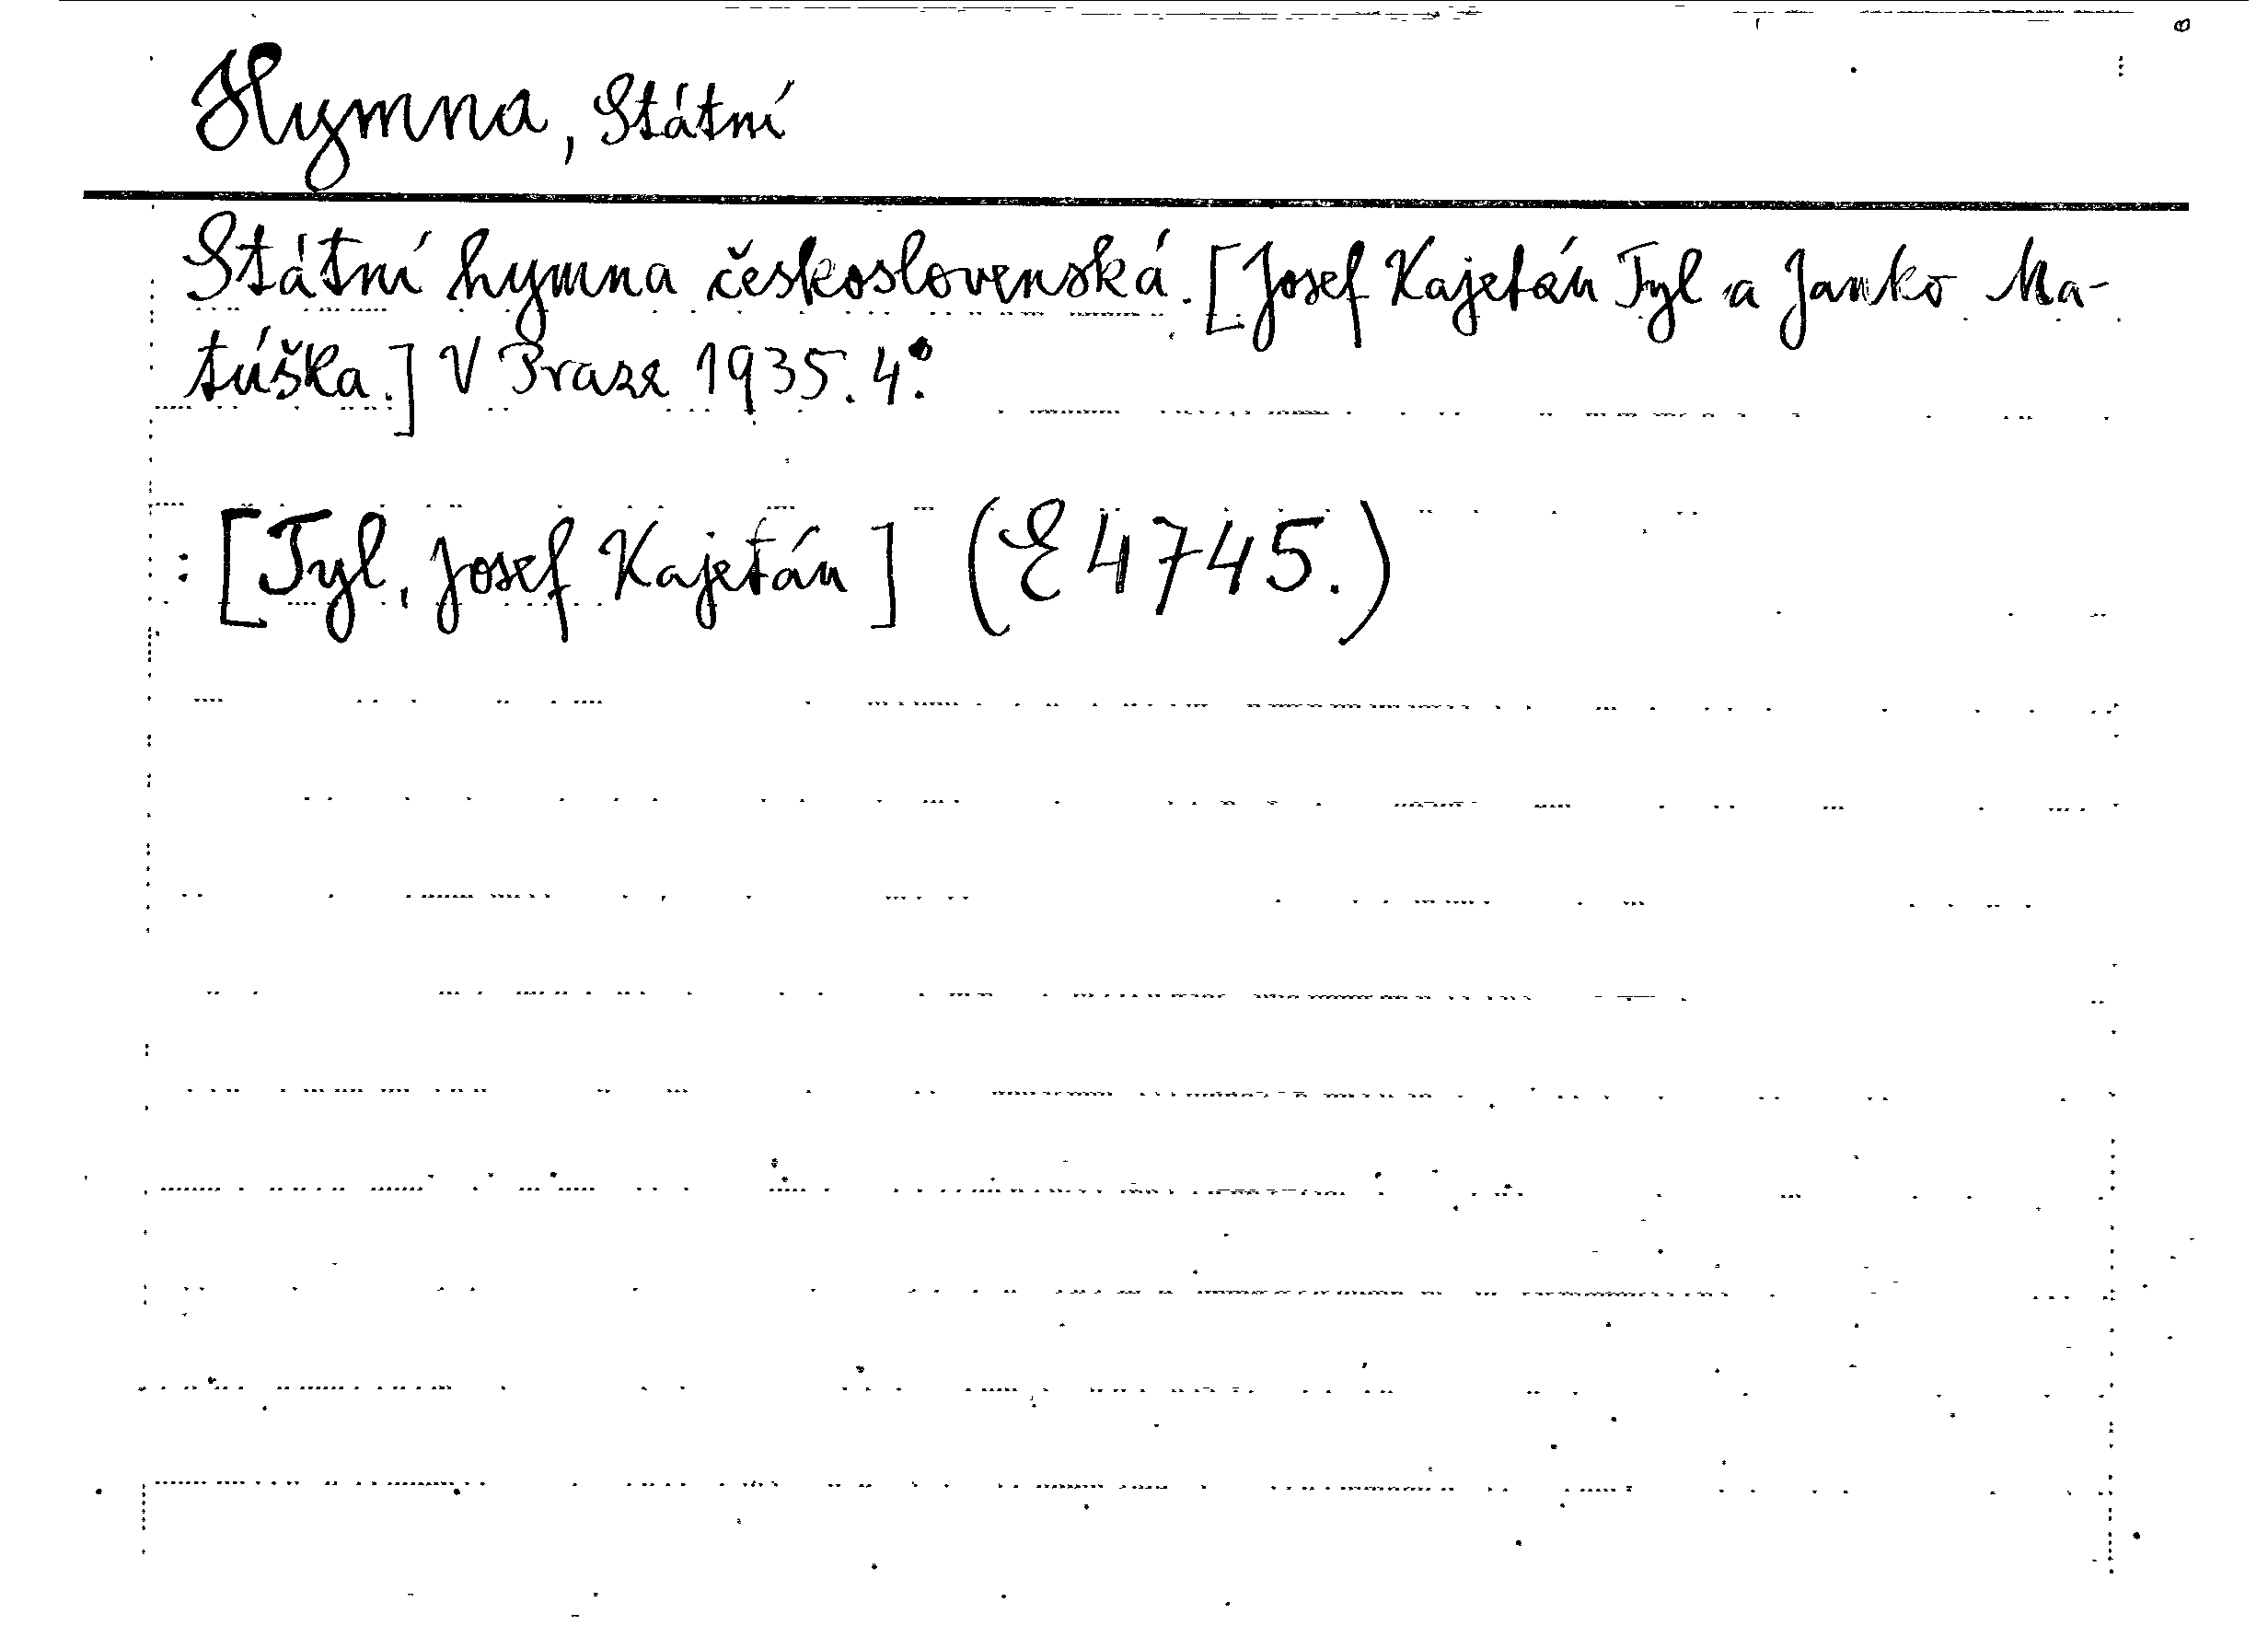 Hymna, Státní
Státní hymna československá. [Josef Kajetán Tyl a Janko Ma-
túška.] V Praze 1935. 4°.
: [Tyl, Josef Kajetán] (E 4745.)